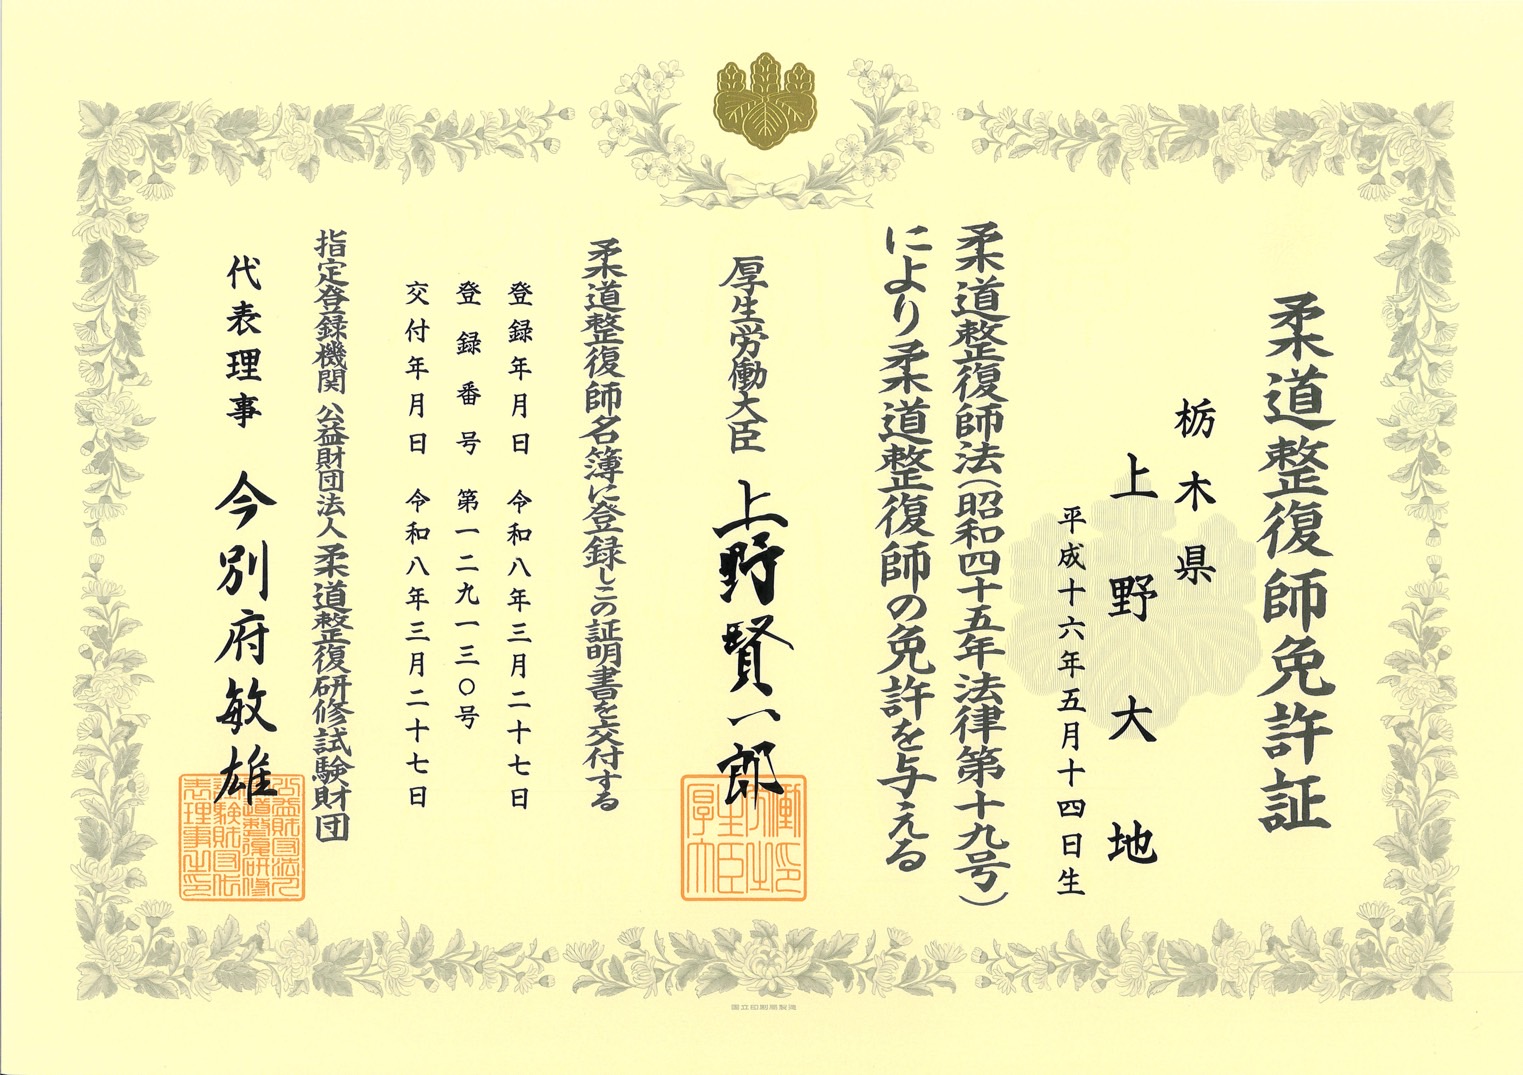 柔道整復師免許証
栃木県
上野大地
平成十六年五月十四日生
柔道整復師法（昭和四十五年法律第十九号）
により柔道整復師の免許を与える
厚生労働大臣 上野賢一郎
柔道整復師名簿に登録しこの証明書を交付する
登録年月日 令和八年三月二十七日
登録番号 第一二九一三〇号
交付年月日 令和八年三月二十七日
指定登録機関 公益財団法人 柔道整復研修試験財団
代表理事 今別府敏雄
国立印刷局製造